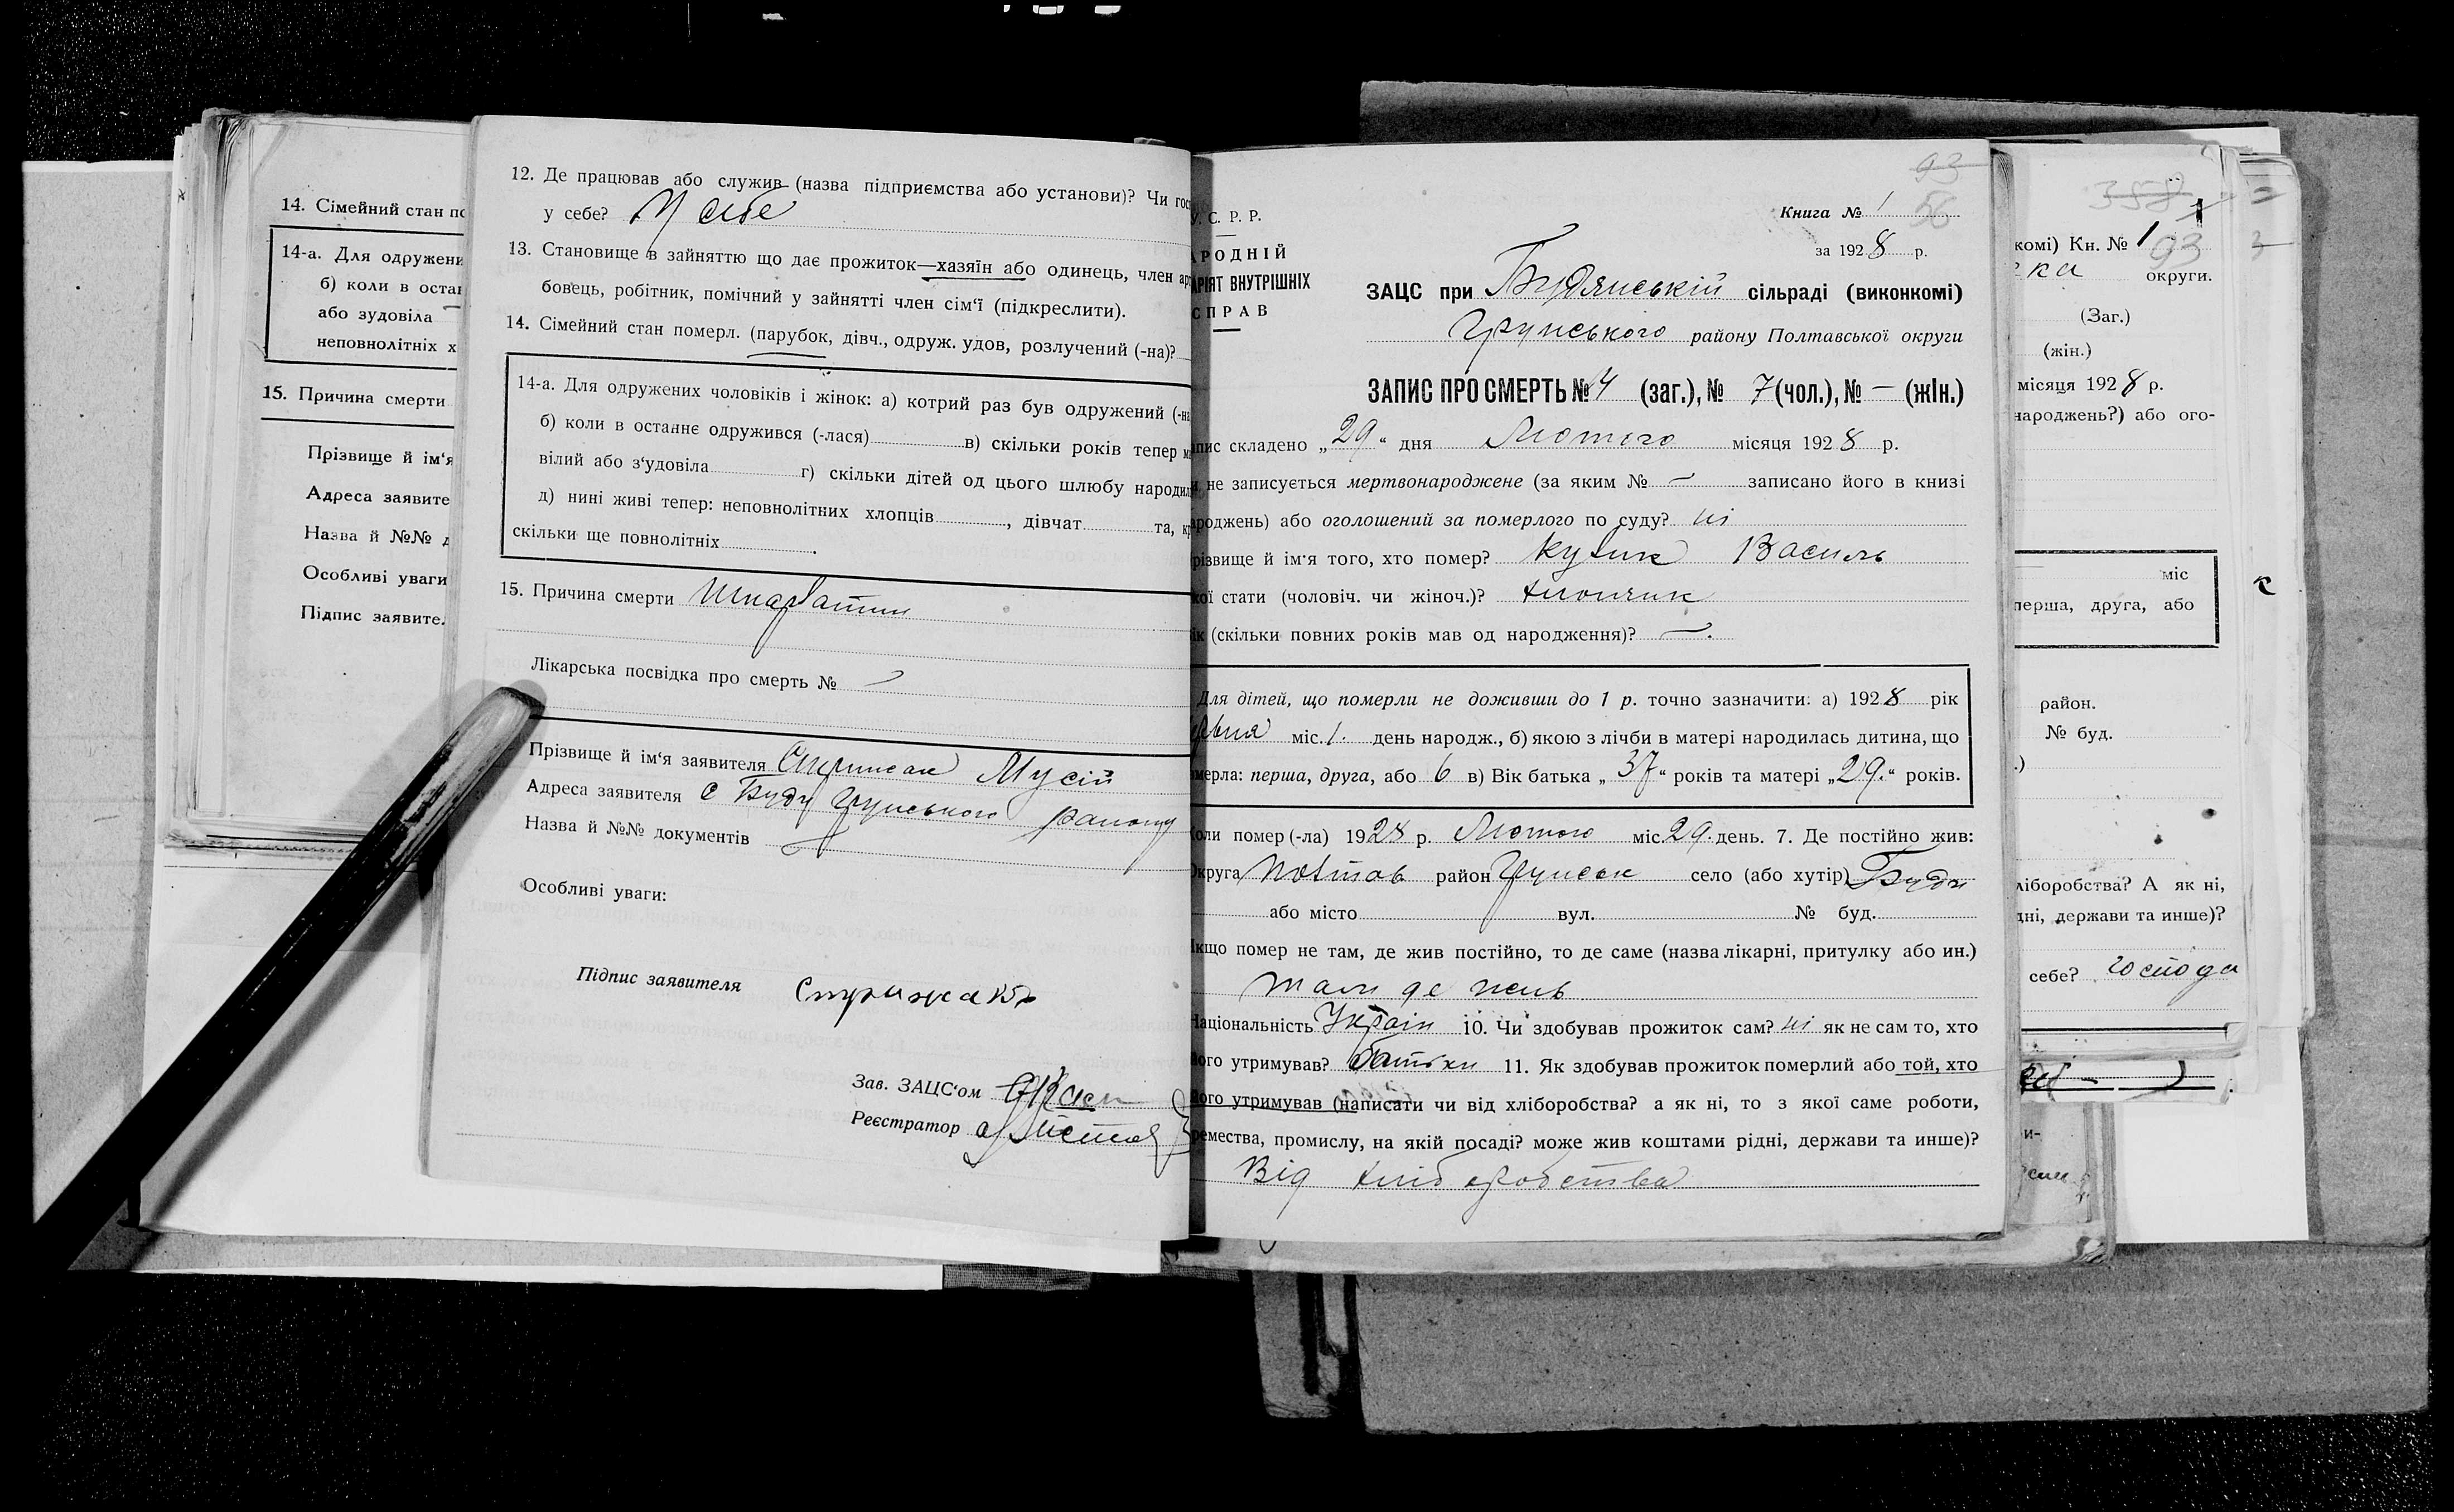 14. Сімейний стан по
14-а. Для одружени
б) коли в остан
або зудовіла
неповнолітніх х
15. Причина смерти
Прізвище й ім‘я
Адреса заявите
Назва й №№ д
Особливі уваги
Підпис заявите.
12. Де працював або служив (назва підприємства або установи)? Чи гос
у себе? У себе
13. Становище в зайняттю що дає прожиток—хазяїн або одинець, член ар
бовець, робітник, помічний у зайнятті член сім‘ї (підкреслити).
14. Сімейний стан померл. (парубок, дівч., одруж. удов, розлучений (-на)?
14-а. Для одружених чоловіків і жінок: а) котрий раз був одружений (-на
б) коли в останнє одружився (-лася) в) скільки років тепер м
вілий або з‘удовіла г) скільки дітей од цього шлюбу народил
д) нині живі тепер: неповнолітних хлопців , дівчат та, кр
скільки ще повнолітніх .
15. Причина смерти
Лікарська посвідка про смерть № —
Прізвище й ім‘я заявителя Стрижак Мусій
Адреса заявителя с Буди Грунського району
Назва й №№ документів
Особливі уваги:
Підпис заявителя Стрижак
Зав. ЗАЦС‘ом
Реєстратор
93
56
Книга № 1
У. С. Р. Р.
за 1928 р.
АРОДНІЙ
АРІЯТ ВНУТРІШНІХ
СПРАВ
ЗАЦС при Будянській сільраді (виконкомі)
Грунського району Полтавської округи
ЗАПИС ПРО СМЕРТЬ № (заг.), № 7 (чол.), № — (жін.)
апис складено „29“ дня Лютого місяця 1928 р.
и не записується мертвонароджене (за яким № — записано його в книзі
ароджень) або оголошений за померлого по суду? ні
різвище й ім‘я того, хто помер? Василь
кої стати (чоловіч. чи жіноч.)? хлопчик
ік (скільки повних років мав од народження)? —.
Для дітей, що померли не доживши до 1 р. точно зазначити: а) 1928 рік
міс. 1. день народж., б) якою з лічби в матері народилась дитина, що
мерла: перша, друга, або 6 в) Вік батька „37“ років та матері „29.“ років.
оли помер (-ла) 1928 р. Лютого міс. 29. день. 7. Де постійно жив:
Округа Полтав район Грунськ село (або хутір) Буди
або місто вул. № буд.
кщо помер не там, де жив постійно, то де саме (назва лікарні, притулку або ин.)
там де жив
Національність Україн 10. Чи здобував прожиток сам? ні як не сам то, хто
його утримував? батьки 11. Як здобував прожиток померлий або той, хто
його утримував (написати чи від хліборобства? а як ні, то з якої саме роботи,
ремества, промислу, на якій посаді? може жив коштами рідні, держави та инше)?
Від хліборобства
358
1
комі) Кн. № 1
93
ка округи.
(Заг.)
(жін.)
місяця 1928 р.
народжень?) або ого-
міс
перша, друга, або
район.
№ буд.
.)
ліборобства? А як ні,
дні, держави та инше)?
себе? господа
и-